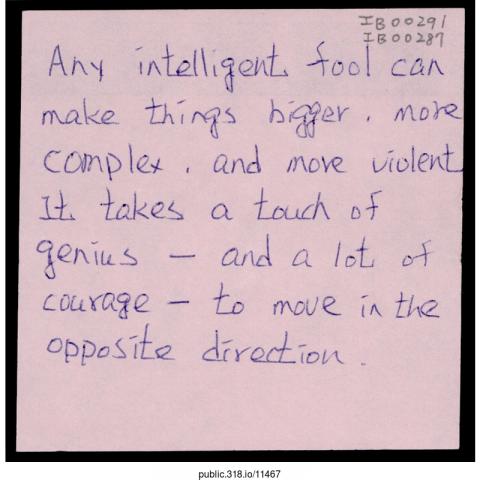 IB00291
IB00287
Any intelligent fool can
make things bigger. more
complex. and more violent
It takes a touch of
genius — and a lot of
courage — to move in the
opposite direction.
public.318.io/11467